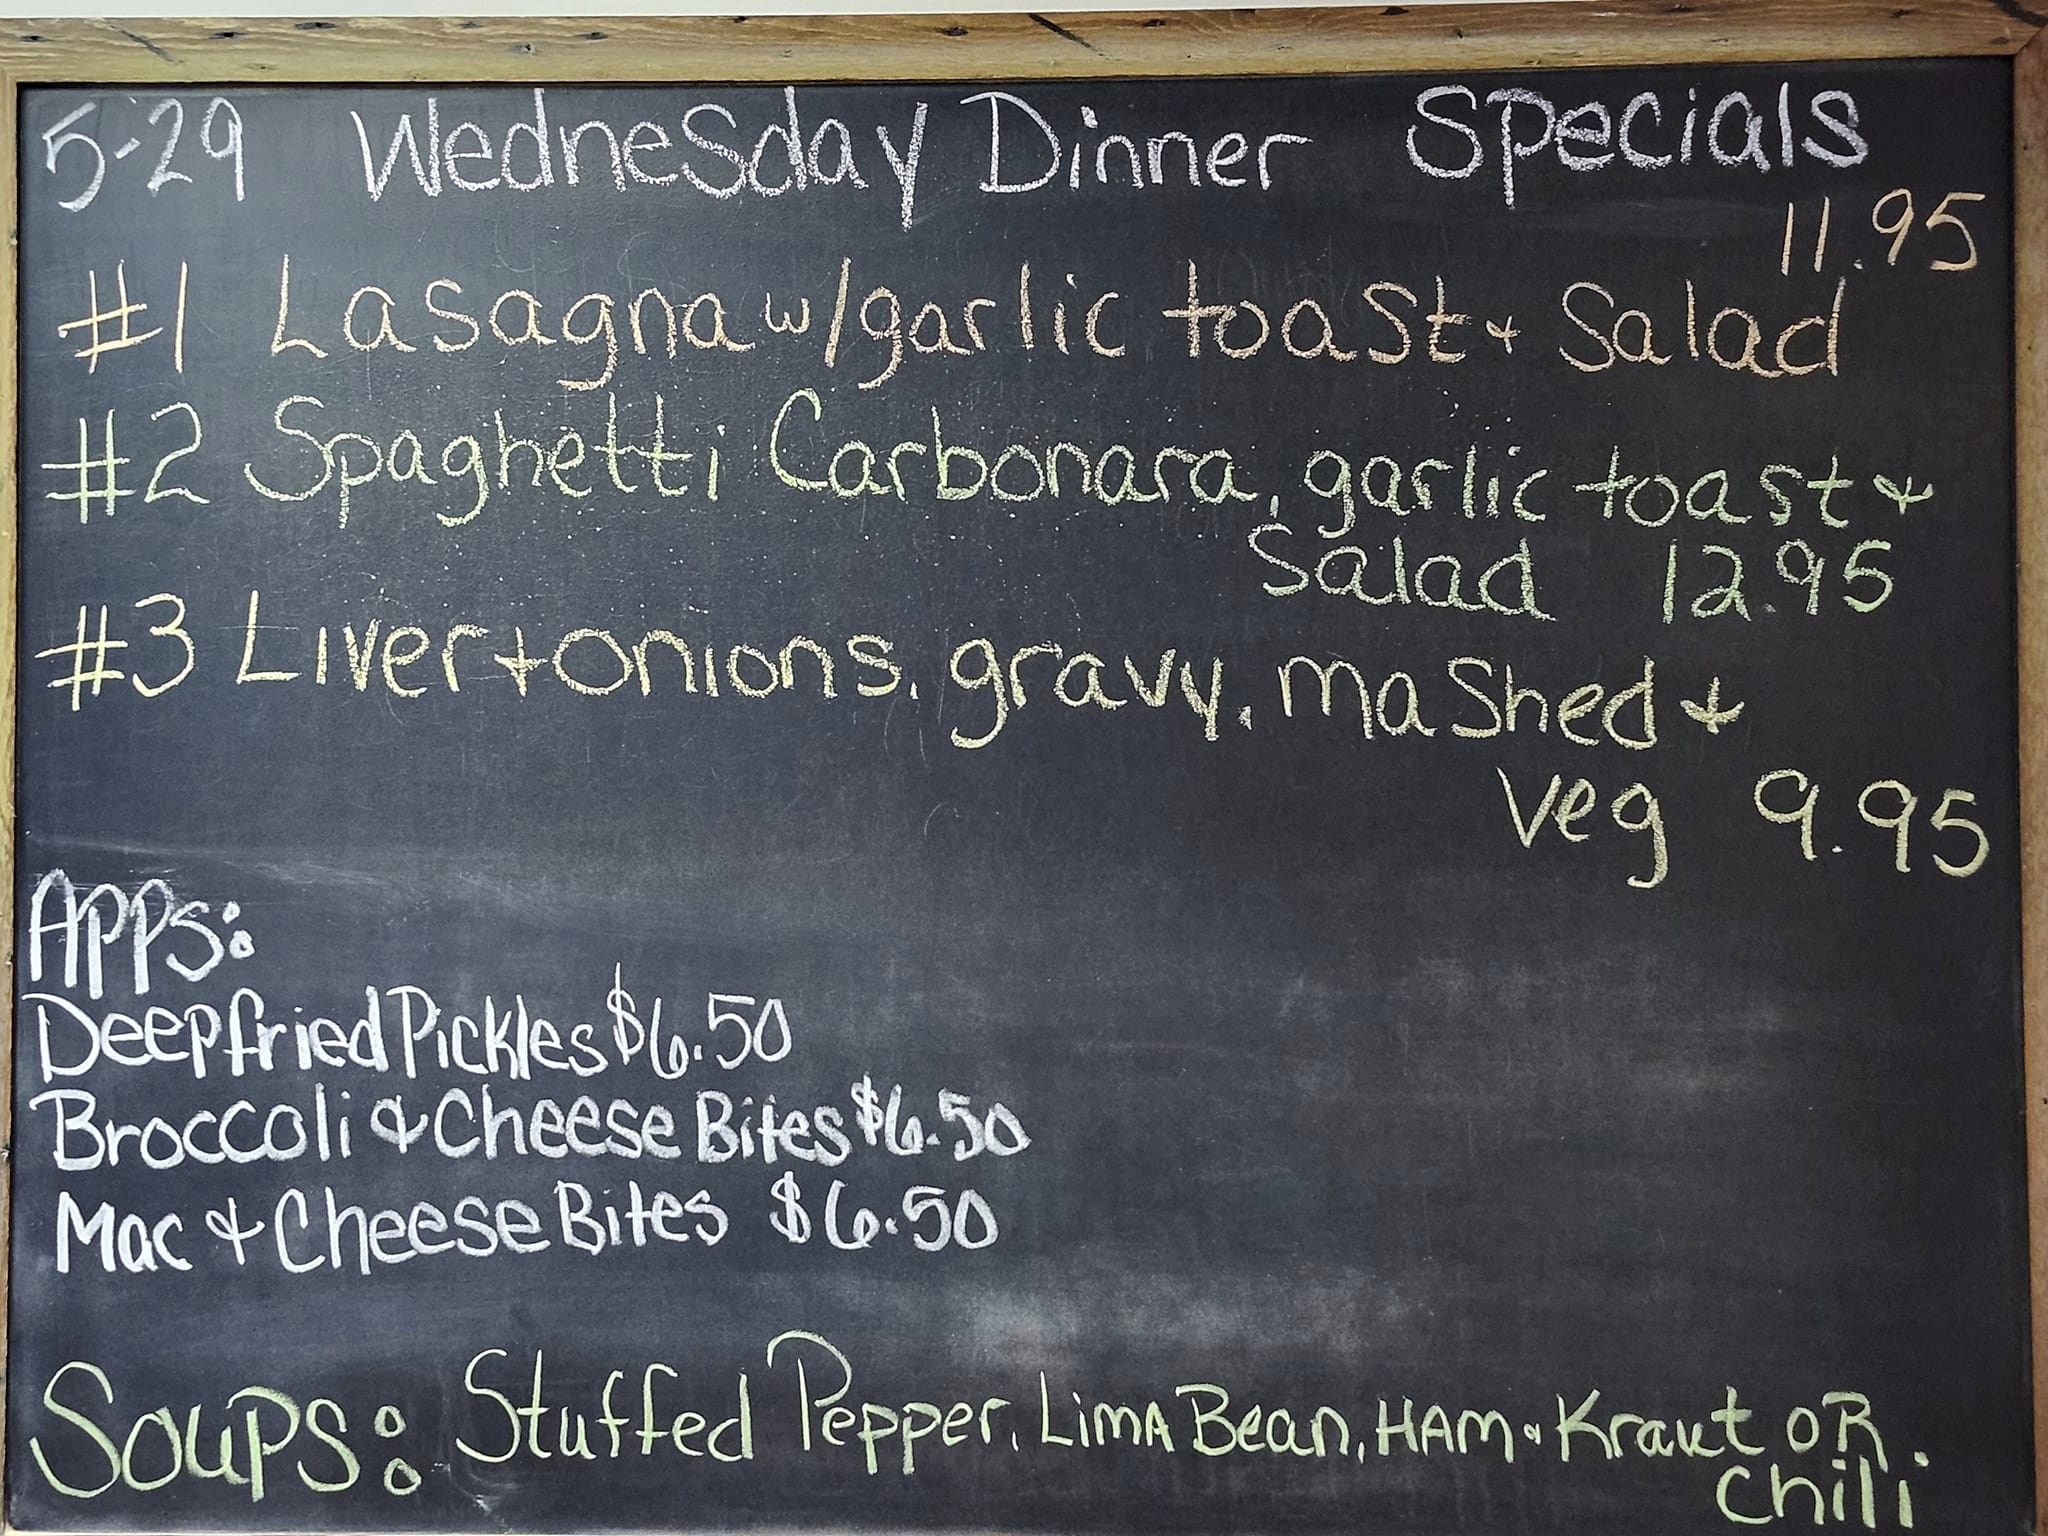 5-29 Wednesday Dinner Specials
11.95
#1 Lasagna w/garlic toast & Salad
#2 Spaghetti Carbonara, garlic toast &
Salad 12.95
#3 Liver & onions, gravy, mashed &
veg 9.95
Apps:
Deepfried Pickles $6.50
Broccoli & Cheese Bites $6.50
Mac & Cheese Bites $6.50
Soups: Stuffed Pepper, Lima Bean, Ham & Kraut OR
Chili